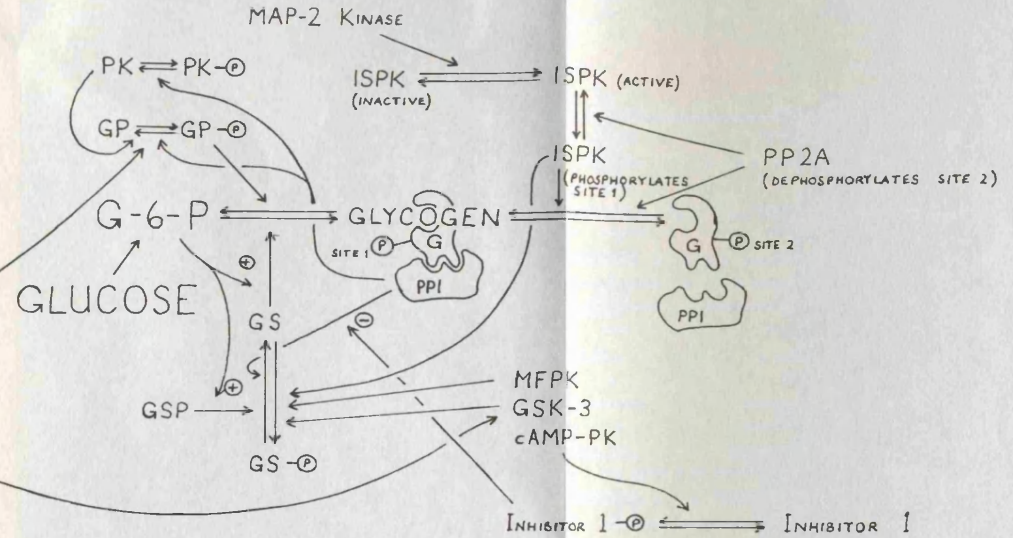 MAP-2 KINASE
PK PK-P
ISPK
(INACTIVE)
ISPK (ACTIVE)
GP GP-P
ISPK
(PHOSPHORYLATES
SITE 1)
PP2A
(DEPHOSPHORYLATES SITE 2)
G-6-P
GLYCOGEN
SITE 1 P G
PP1
G P SITE 2
PP1
GLUCOSE
+
GS
-
+
GSP
MFPK
GSK-3
cAMP-PK
GS-P
INHIBITOR 1-P
INHIBITOR 1